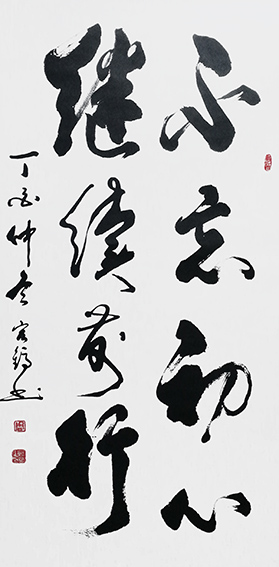 不忘初心
继续前行
丁酉仲冬